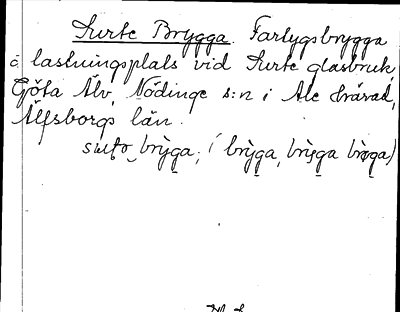 Surte Brygga. Fartygsbrygga
o lastningsplats vid Surte glasbruk,
Göta Älv, Nödinge s:n i Ale härad,
Älfsborgs län.
brỳga, brỳga